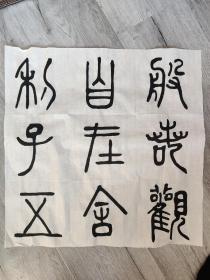 般若觀
自在舍
利子五